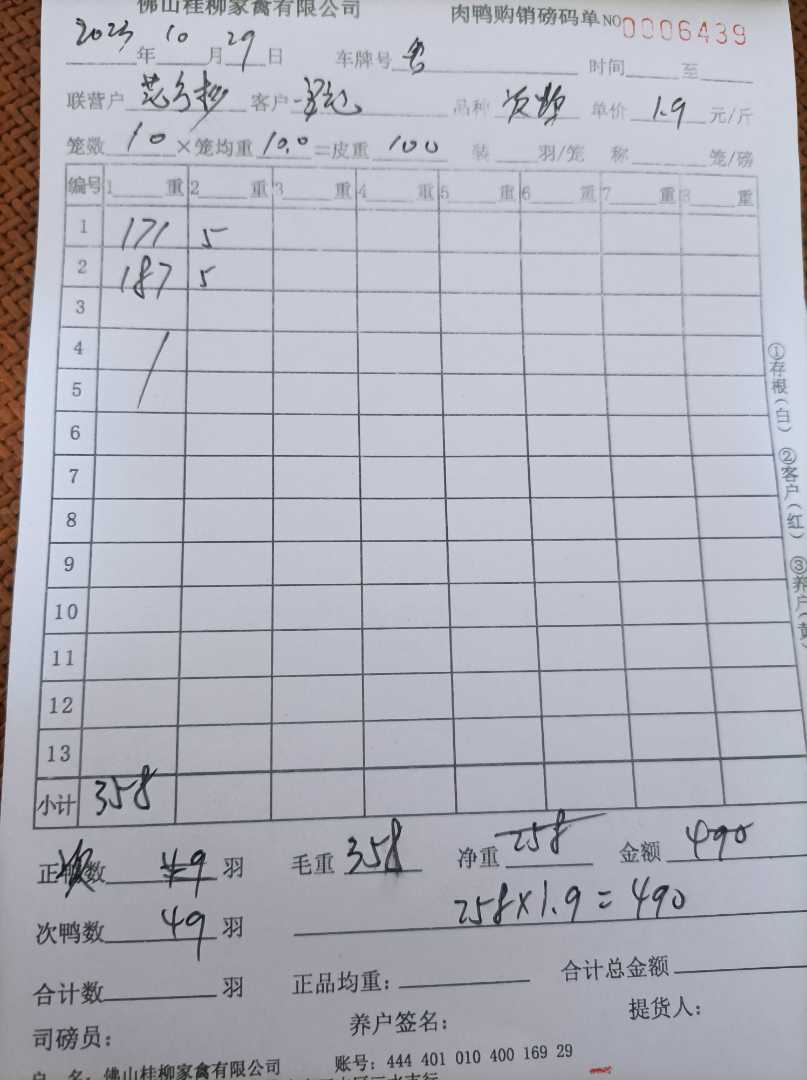 佛山桂柳家禽有限公司 肉鸭购销磅码单 NO 0006439
2023年10月29日 车牌号 时间 至
联营户 客户 品种 单价 1.9 元/斤
笼数 10 ×笼均重 10.0 =皮重 100 装 羽/笼 称 笼/磅
编号 1 重 2 重 3 重 4 重 5 重 6 重 7 重 8 重
1 171 5
2 187 5
3
4
5
6
7
8
9
10
11
12
13
小计 358
正鸭数 49 羽 毛重 358 净重 258 金额 490
258×1.9=490
次鸭数 49 羽
合计数 羽 正品均重: 合计总金额
司磅员: 养户签名: 提货人:
户 名: 佛山桂柳家禽有限公司 账号: 444 401 010 400 169 29
①存根(白) ②客户(红) ③养户(黄)